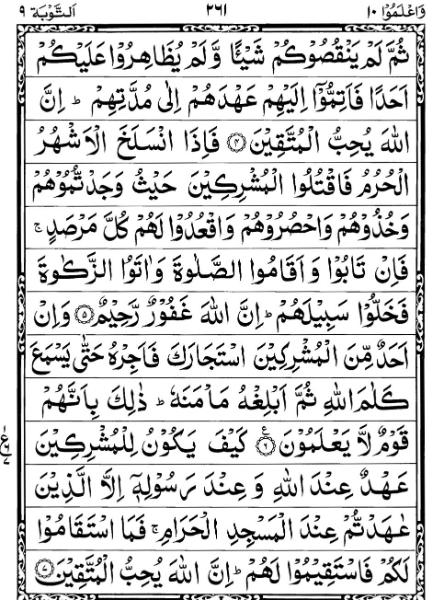 وَاعْلَمُوْٓا ١٠ ٢٦١ اَلتَّوْبَة ٩
ثُمَّ لَمْ يَنْقُصُوْكُمْ شَيْـًٔا وَّلَمْ يُظَاهِرُوْا عَلَيْكُمْ
اَحَدًا فَاَتِمُّوْٓا اِلَيْهِمْ عَهْدَهُمْ اِلٰى مُدَّتِهِمْ ؕ اِنَّ
اللّٰهَ يُحِبُّ الْمُتَّقِيْنَ ﴿۴﴾ فَاِذَا انْسَلَخَ الْاَشْهُرُ
الْحُرُمُ فَاقْتُلُوا الْمُشْرِكِيْنَ حَيْثُ وَجَدْتُّمُوْهُمْ
وَخُذُوْهُمْ وَاحْصُرُوْهُمْ وَاقْعُدُوْا لَهُمْ كُلَّ مَرْصَدٍ ۚ
فَاِنْ تَابُوْا وَاَقَامُوا الصَّلٰوةَ وَاٰتَوُا الزَّكٰوةَ
فَخَلُّوْا سَبِيْلَهُمْ ؕ اِنَّ اللّٰهَ غَفُوْرٌ رَّحِيْمٌ ﴿۵﴾ وَاِنْ
اَحَدٌ مِّنَ الْمُشْرِكِيْنَ اسْتَجَارَكَ فَاَجِرْهُ حَتّٰى يَسْمَعَ
كَلٰمَ اللّٰهِ ثُمَّ اَبْلِغْهُ مَاْمَنَهٗ ؕ ذٰلِكَ بِاَنَّهُمْ
قَوْمٌ لَّا يَعْلَمُوْنَ ﴿۶﴾ كَيْفَ يَكُوْنُ لِلْمُشْرِكِيْنَ
عَهْدٌ عِنْدَ اللّٰهِ وَعِنْدَ رَسُوْلِهٖٓ اِلَّا الَّذِيْنَ
عٰهَدْتُّمْ عِنْدَ الْمَسْجِدِ الْحَرَامِ ۚ فَمَا اسْتَقَامُوْا
لَكُمْ فَاسْتَقِيْمُوْا لَهُمْ ؕ اِنَّ اللّٰهَ يُحِبُّ الْمُتَّقِيْنَ ﴿۷﴾